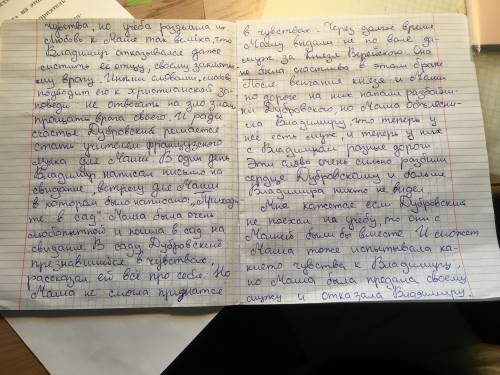 чувства, но учёба разделила их
Любовь к Маше так велика, что
Владимир отказывался даже
мстить её отцу, своему заклято-
му врагу. Иными словами, любовь
подводит его к христианской за-
поведи не отвечать на зло злом
прощать врага своего. И ради
счастье Дубровский решается
стать учителем французского
языка для Маши. В один день
Владимир написал письмо на
свидание, встречу для Маши
в котором было написано, "Приходи-
те в сад". Маша была очень
любопытной и пошла в сад на
свидание. В саду Дубровский
презнавшийся в чувствах,
рассказал ей всё про себя. Но
Маша не смогла признатся
в чувствах. Через время
Машу выдали не по воле за-
муж за князя Верейского. Она
не была счастлива в этом браке
После венчания князя и Маши
по дороге на них напали разбойни-
ки Дубровского, но Маша объясни-
ла Владимиру, что теперь у
неё есть муж и теперь у них
с Владимиром разные дороги
Эти слова очень сильно разбили
сердце Дубровскому и больше
Владимира никто не видел
Мне кажется если Дубровский
не поехал на учёбу, то они с
Машей были бы вместе. И может
Маша тоже испытывала ка-
кие-то чувства к Владимиру,
но Маша была предана своему
мужу и отказала Владимиру.